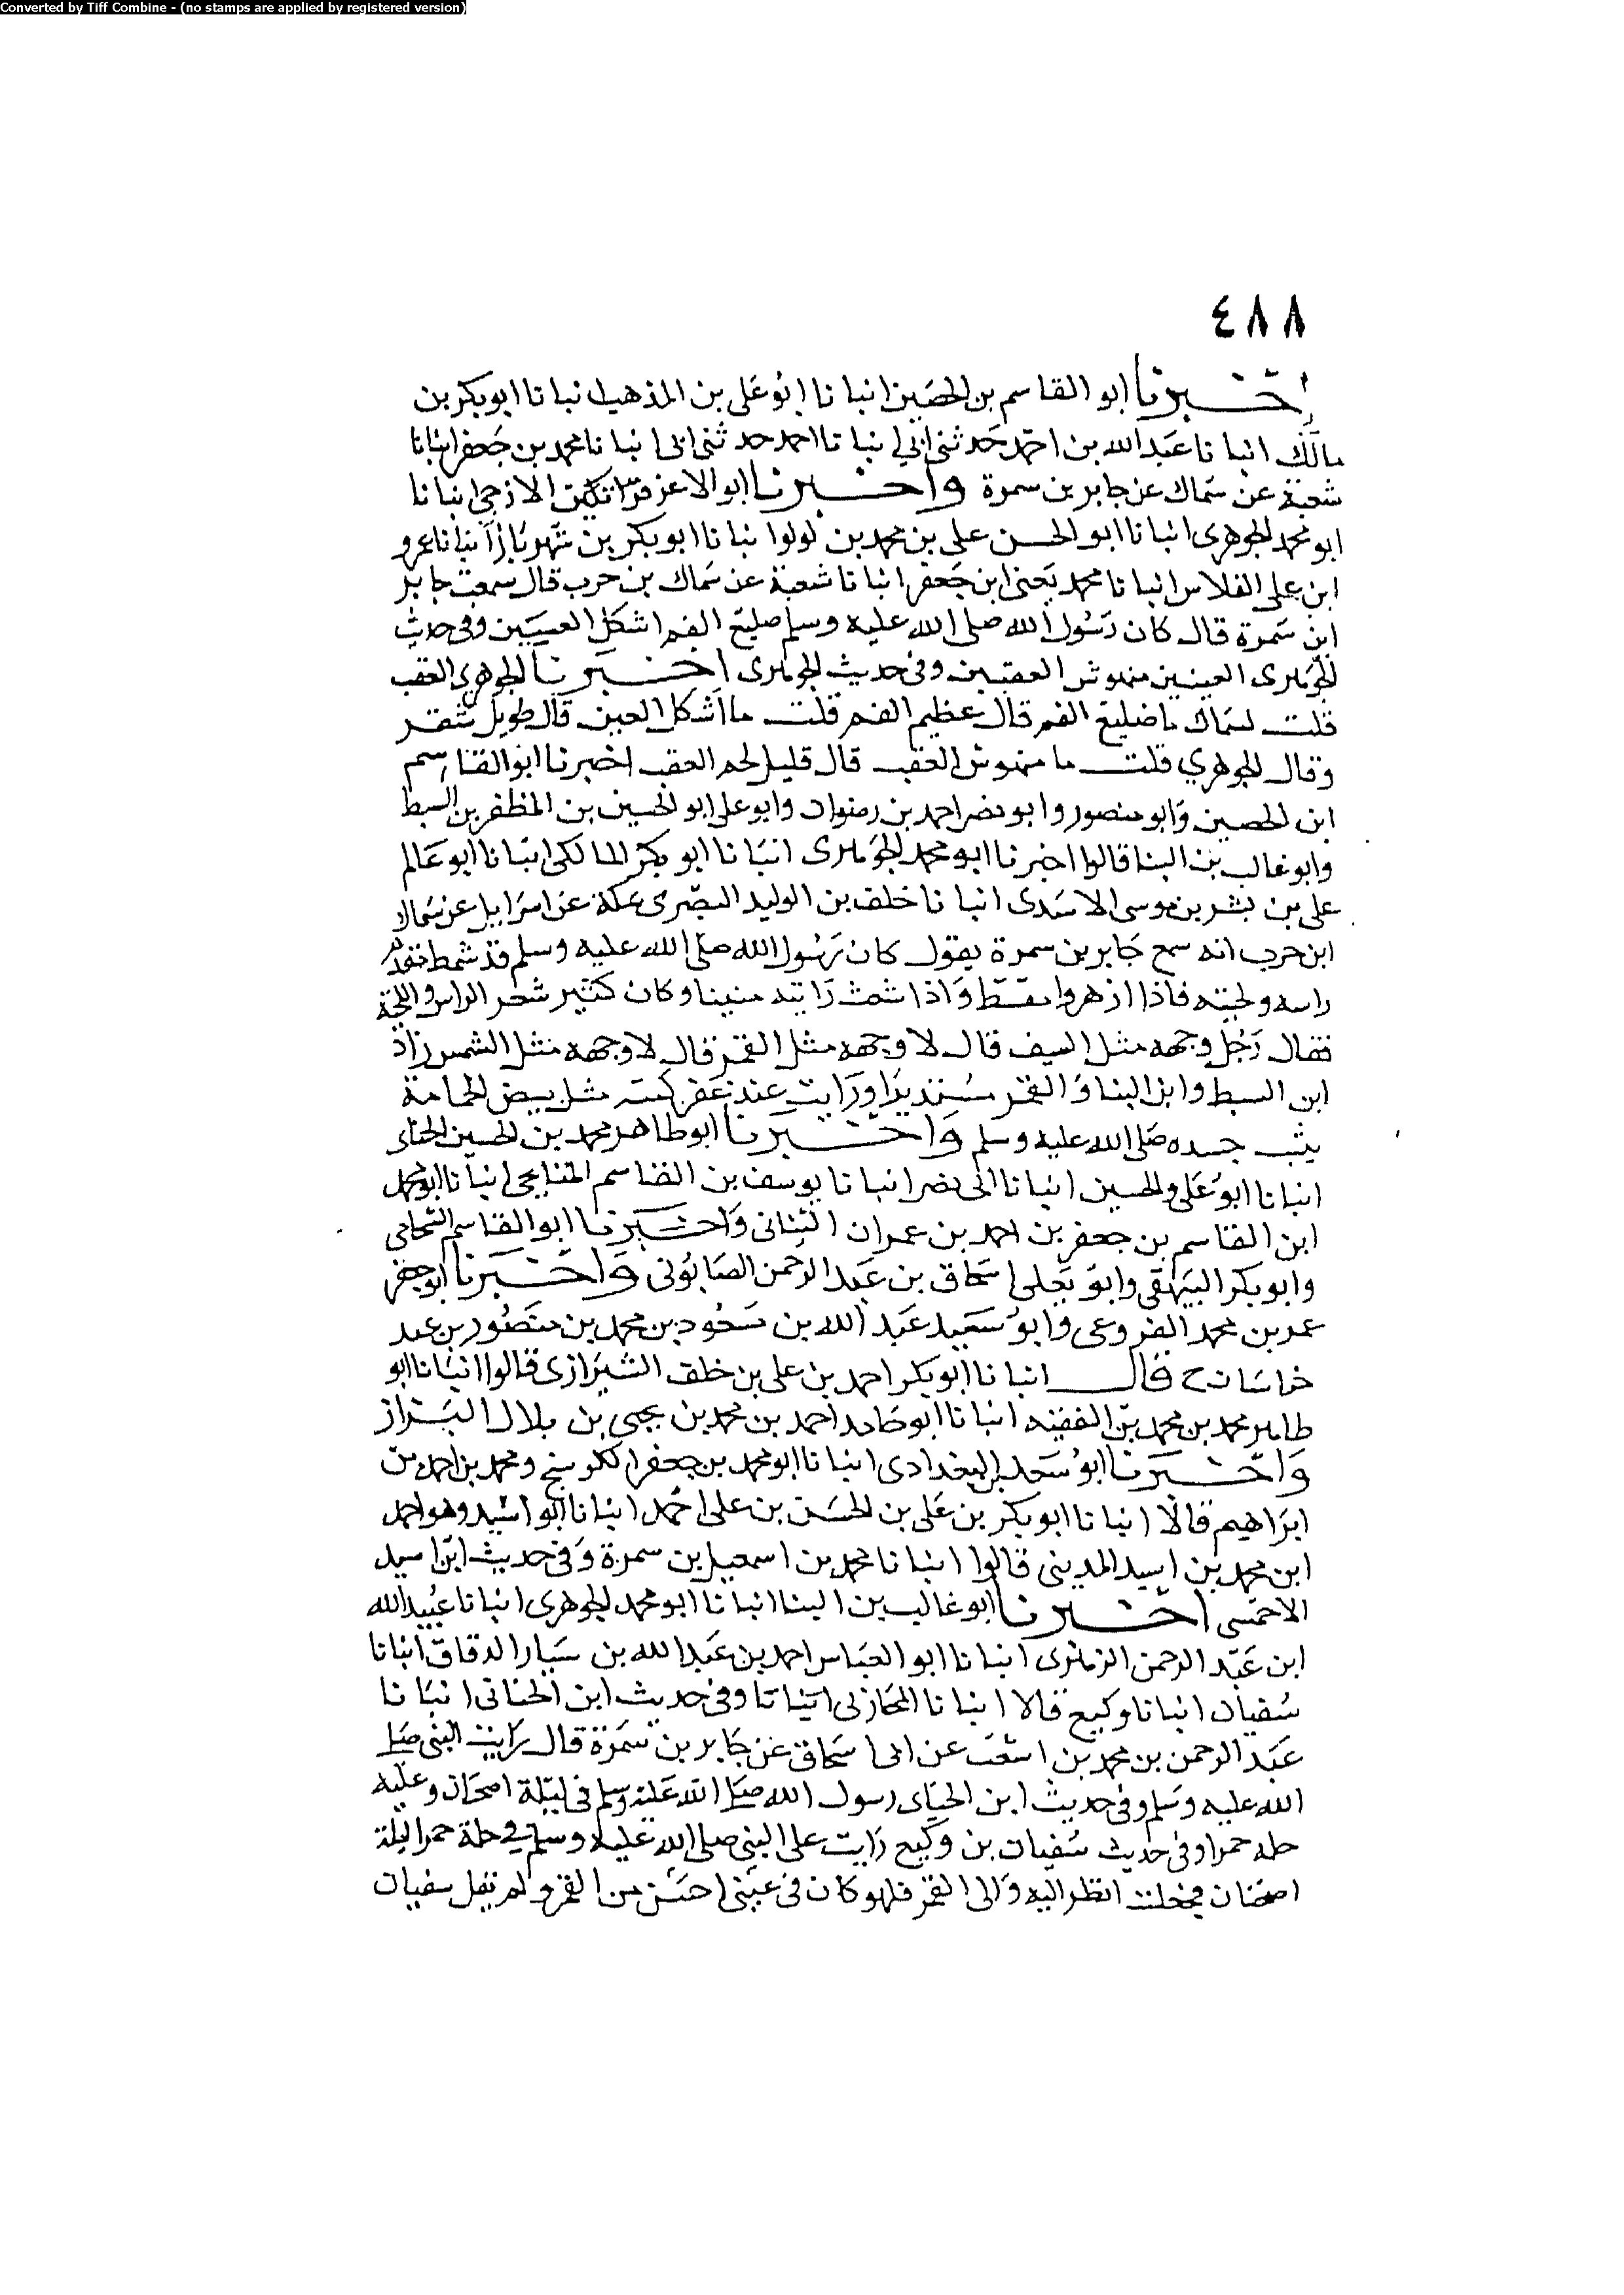 Converted by Tiff Combine - (no stamps are applied by registered version)
٤٨٨
اخبرنا ابو القاسم بن الحصين انبانا ابو على بن المذهب انبانا ابو بكر بن
مالك انبانا عبد الله بن احمد حدثنى ابي انبانا احمد حدثنى ابى انبانا محمد بن جعفر انبانا
شعبة عن سماك عن جابر بن سمرة واخبرنا ابو الاعز قراتكين الازجى انبانا
ابو محمد الجوهرى انبانا ابو الحسن على بن محمد بن لولوا نبانا ابو بكر بن شهريار انبانا عمرو
ابن على الفلاس انبانا محمد يعنى ابن جعفر انبانا شعبة عن سماك بن حرب قال سمعت جابر
ابن سمرة قال كان رسول الله صلى الله عليه وسلم ضليع الفم اشكل العينين وفى حديث
الجوهرى العينين منهوش العقبين وفى حديث الجوهرى اخبرنا الجوهرى العقب
قلت لسماك ما ضليع الفم قال عظيم الفم قلت ما اشكل العين قال طويل شقر
وقال الجوهري قلت ما منهوش العقب قال قليل لحم العقب اخبرنا ابو القاسم
ابن الحصين وابو منصور وابو نصر احمد بن رضوان وابو على ابو الحسين بن المظفر بن السبط
وابو غالب بن البنا قالوا اخبرنا ابو محمد الجوهرى انبانا ابو بكر المالكى انبانا ابو عالم
على بن بشر بن موسى الاسدى انبانا خلف بن الوليد البصرى بمكة عن اسرايل عن سماك
ابن حرب انه سمع جابر بن سمرة يقول كان رسول الله صلى الله عليه وسلم قد شمط مقدم
راسه ولحيته فاذا ازهروا مقسط واذا شمث رايته منينا وكان كثير شعر الراس واللحية
فقال رجل وجهه مثل السيف قال لا وجهه مثل القمر قال لا وجهه مثل الشمس زاد
ابن السبط وابن البنا والقمر مستديرا ورايت عند غضر كتفه مثل بيض الحمامة
يشب جسده صلى الله عليه وسلم واخبرنا ابو طاهر محمد بن الحسين الحناى
انبانا ابو على والحسين انبانا ابى نصر انبانا يوسف بن القاسم الميانجى انبانا ابو محمد
ابن القاسم بن جعفر بن احمد بن عمران الثنانى واخبرنا ابو القاسم الشحامى
وابو بكر البيهقى وابو يعلى اسحاق بن عبد الرحمن الصابونى واخبرنا ابو جعفر
عمر بن محمد الفروعى وابو سعيد عبد الله بن مسعود بن محمد بن منصور بن عبد
خراسان ح قال انبانا ابو بكر احمد بن على بن خلف الشيرازى قالوا انبانا ابو
طاهر محمد بن محمد بن الفقيه انبانا ابو حامد احمد بن محمد بن يحيى بن بلال البزاز
واخبرنا ابو سعد البغدادى انبانا ابو محمد بن جعفر الكوسج ومحمد بن احمد بن
ابراهيم قالا انبانا ابو بكر بن على بن الحسن بن على احمد انبانا ابو اسيد وهو احمد
ابن محمد بن اسيد المدينى قالوا انبانا محمد بن اسمعيل بن سمرة وفى حديث ابن اسيد
الاحمسى اخبرنا ابو غالب بن البنا انبانا ابو محمد الجوهرى انبانا عبيد الله
ابن عبد الرحمن الزهرى انبانا ابو العباس احمد بن عبد الله بن سيار الدقاق انبانا
سفيان انبانا وكيع قالا انبانا المحاربى انبانا وفى حديث ابن الحنائى انبانا
عبد الرحمن بن محمد بن اشعث عن ابى اسحاق عن جابر بن سمرة قال رايت النبى صلى
الله عليه وسلم وفى حديث ابن الحناى رسول الله صلى الله عليه وسلم فى ليلة اضحيان وعليه
حلة حمرا وفى حديث سفيان بن وكيع رايت على النبى صلى الله عليه وسلم فى حلة حمرا ليلة
اضحيان فجعلت انظر اليه والى القمر فلهو كان فى عينى احسن من القمر ولم يقل سفيان